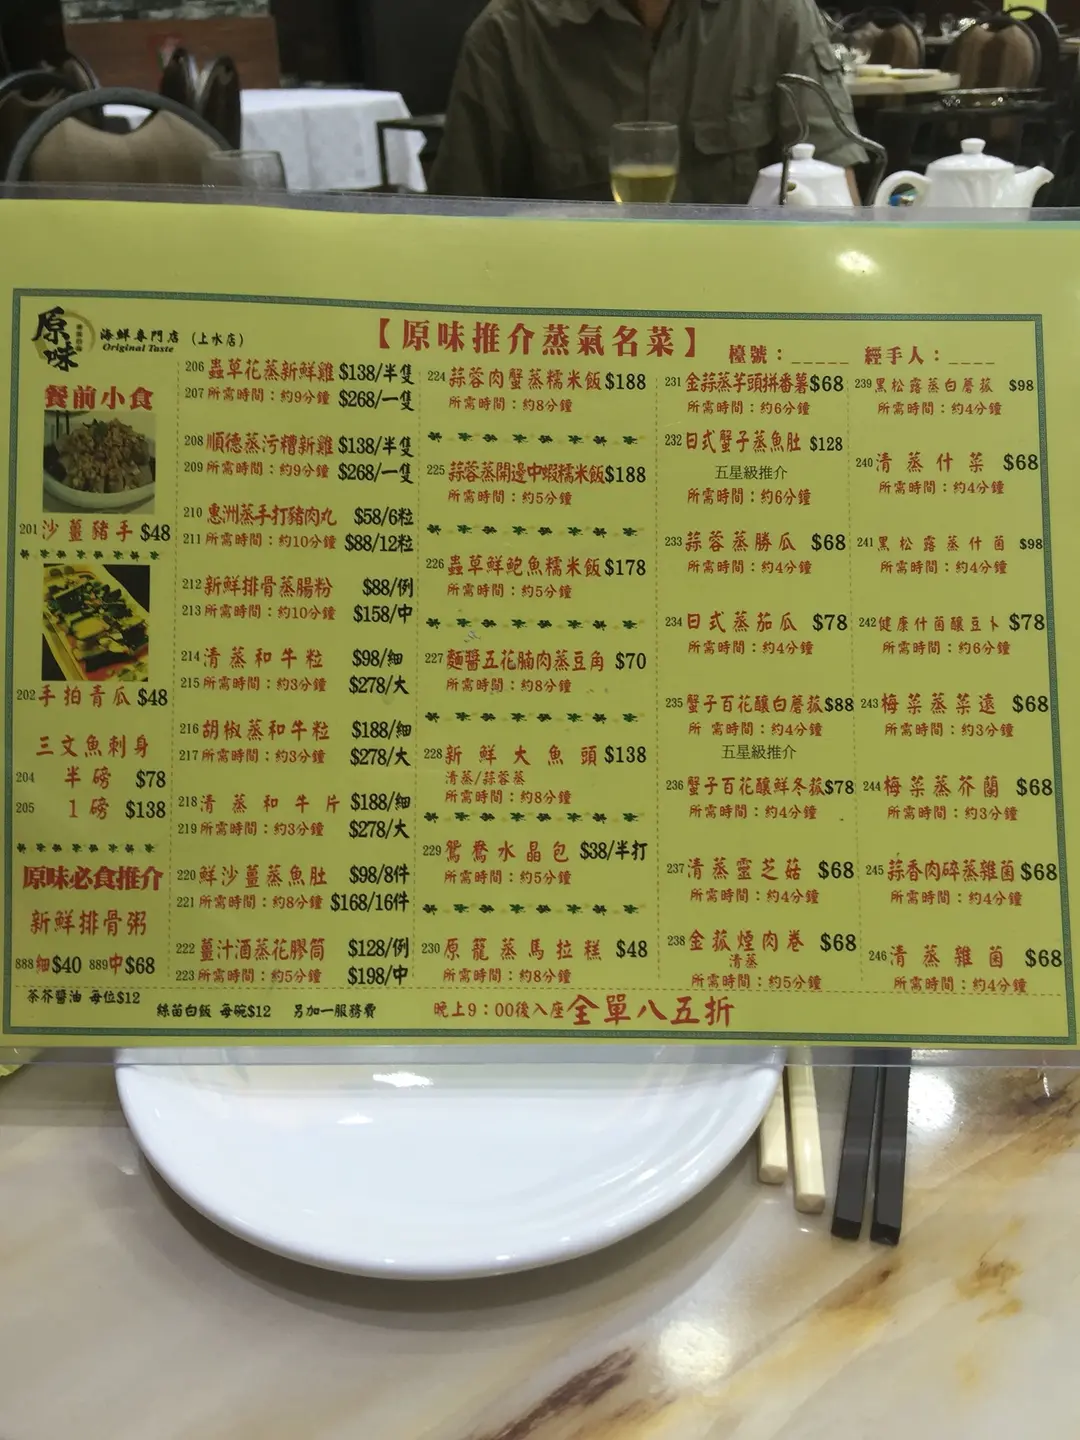 原味
海鮮專門店 (上水店)
Original Taste
【原味推介蒸氣名菜】
檯號：_____ 經手人：____
餐前小食
201 沙薑豬手 $48
202 手拍青瓜 $48
三文魚刺身
204 半磅 $78
205 1磅 $138
原味必食推介
新鮮排骨粥
888 細$40 889 中$68
茶芥醬油 每位$12
206 蟲草花蒸新鮮雞 $138/半隻
207 所需時間：約9分鐘 $268/一隻
208 順德蒸污糟新雞 $138/半隻
209 所需時間：約9分鐘 $268/一隻
210 惠洲蒸手打豬肉丸 $58/6粒
211 所需時間：約10分鐘 $88/12粒
212 新鮮排骨蒸腸粉 $88/例
213 所需時間：約10分鐘 $158/中
214 清蒸和牛粒 $98/細
215 所需時間：約3分鐘 $278/大
216 胡椒蒸和牛粒 $188/細
217 所需時間：約3分鐘 $278/大
218 清蒸和牛片 $188/細
219 所需時間：約3分鐘 $278/大
220 鮮沙薑蒸魚肚 $98/8件
221 所需時間：約8分鐘 $168/16件
222 薑汁酒蒸花膠筒 $128/例
223 所需時間：約5分鐘 $198/中
224 蒜蓉肉蟹蒸糯米飯 $188
所需時間：約8分鐘
225 蒜蓉蒸開邊中蝦糯米飯 $188
所需時間：約5分鐘
226 蟲草鮮鮑魚糯米飯 $178
所需時間：約5分鐘
227 麵醬五花腩肉蒸豆角 $70
所需時間：約8分鐘
228 新鮮大魚頭 $138
清蒸/蒜蓉蒸
所需時間：約8分鐘
229 鴛鴦水晶包 $38/半打
所需時間：約5分鐘
230 原籠蒸馬拉糕 $48
所需時間：約8分鐘
231 金蒜蒸芋頭拼番薯 $68
所需時間：約6分鐘
232 日式蟹子蒸魚肚 $128
五星級推介
所需時間：約6分鐘
233 蒜蓉蒸勝瓜 $68
所需時間：約4分鐘
234 日式蒸茄瓜 $78
所需時間：約4分鐘
235 蟹子百花釀白蘑菰 $88
所需時間：約4分鐘
五星級推介
236 蟹子百花釀鮮冬菰 $78
所需時間：約4分鐘
237 清蒸靈芝菇 $68
所需時間：約4分鐘
238 金菰煙肉卷 $68
清蒸
所需時間：約5分鐘
239 黑松露蒸白蘑菰 $98
所需時間：約4分鐘
240 清蒸什菜 $68
所需時間：約4分鐘
241 黑松露蒸什菌 $98
所需時間：約4分鐘
242 健康什菌釀豆卜 $78
所需時間：約6分鐘
243 梅菜蒸菜遠 $68
所需時間：約3分鐘
244 梅菜蒸芥蘭 $68
所需時間：約3分鐘
245 蒜香肉碎蒸雜菌 $68
所需時間：約4分鐘
246 清蒸雜菌 $68
所需時間：約4分鐘
絲苗白飯 每碗$12 另加一服務費
晚上9：00後入座全單八五折